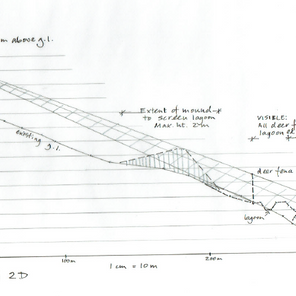 m above g.l.
Extent of mound
to screen lagoon
Max. ht. 2m
VISIBLE:
All deer f
lagoon
existing g.l.
deer fence
lagoon
100m
200m
1 cm = 10m
2D